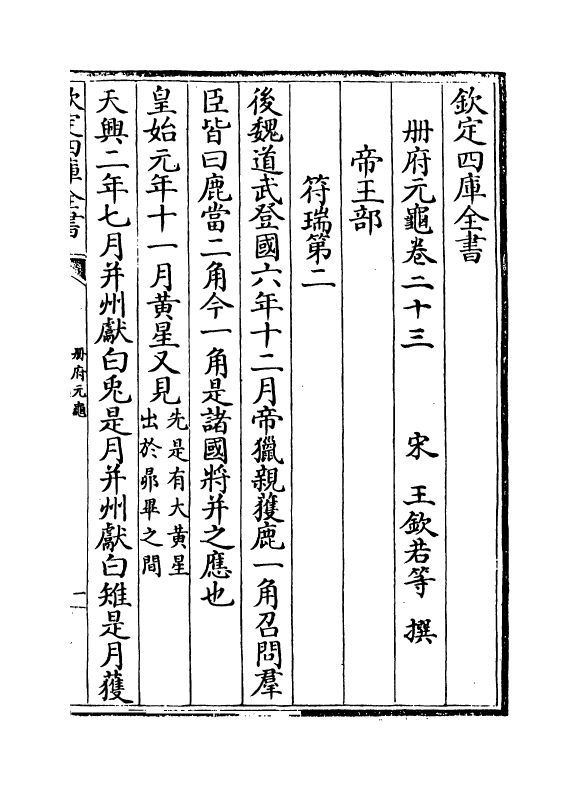 欽定四庫全書
册府元龜卷二十三　宋　王欽若等　撰
帝王部
符瑞第二
後魏道武登國六年十二月帝獵親獲鹿一角召問羣
臣皆曰鹿當二角今一角是諸國將并之應也
皇始元年十一月黄星又見先是有大黄星
出於昴畢之間
天興二年七月并州獻白兎是月并州獻白雉是月獲
欽定四庫全書
册府元龜
一